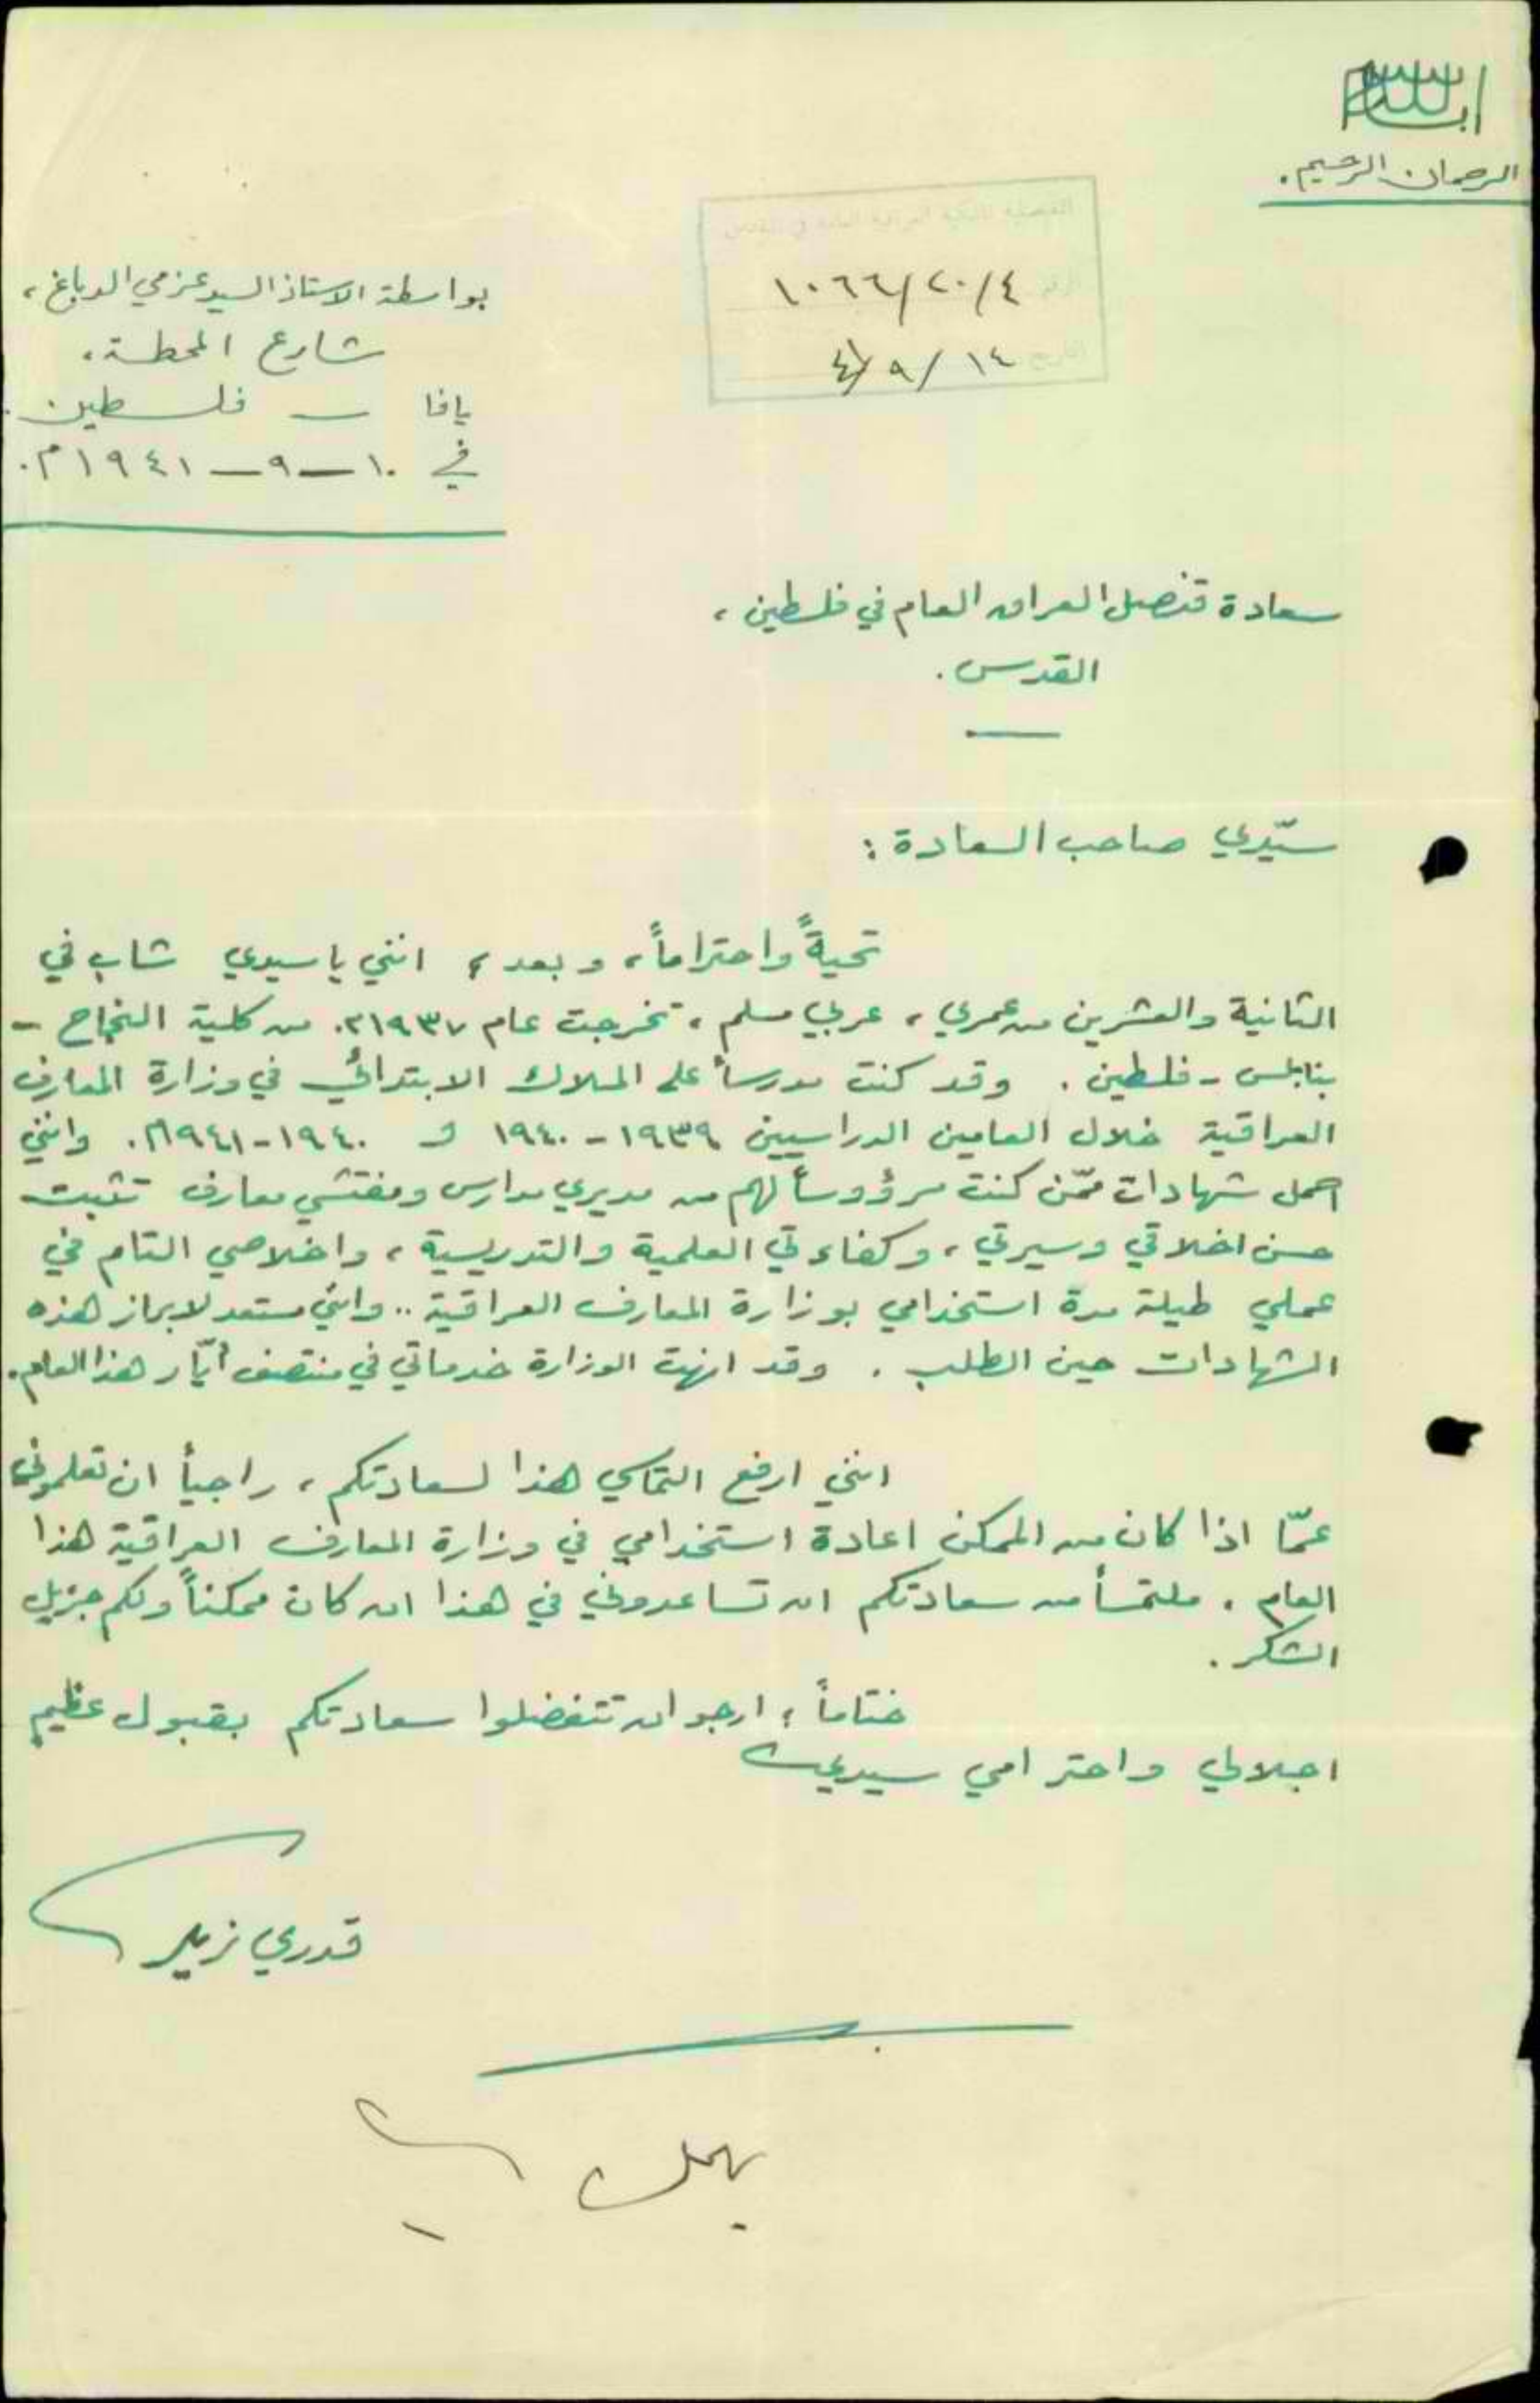 بسم الله
الرحمان الرحيم.
القنصلية الملكية العراقية العامة في القدس
١٠٦٦/٢٠/٤
١٤/٩/٤١
بواسطة الاستاذ السيد عزمي الدباغ،
شارع المحطة،
يافا – فلسطين.
في ١٠-٩-١٩٤١م.
سعادة قنصل العراق العام في فلسطين،
القدس.
سيّدي صاحب السعادة:
تحيةً واحتراماً، وبعد؛ انني يا سيدي شاب في
الثانية والعشرين من عمري، عربي مسلم، تخرجت عام ١٩٣٧م. من كلية النجاح -
بنابلس - فلسطين. وقد كنت مدرساً على الملاك الابتدائي في وزارة المعارف
العراقية خلال العامين الدراسيين ١٩٣٩-١٩٤٠ و ١٩٤٠-١٩٤١م. وانني
احمل شهادات ممّن كنت مرؤوساً لهم من مديري مدارس ومفتشي معارف تثبت
حسن اخلاقي وسيرتي، وكفاءتي العلمية والتدريسية، واخلاصي التام في
عملي طيلة مدة استخدامي بوزارة المعارف العراقية.. وانني مستعد لابراز هذه
الشهادات حين الطلب. وقد انهت الوزارة خدماتي في منتصف أيّار هذا العام.
انني ارفع التماسي هذا لسعادتكم، راجياً ان تعلموني
عمّا اذا كان من الممكن اعادة استخدامي في وزارة المعارف العراقية هذا
العام. ملتمساً من سعادتكم ان تساعدوني في هذا ان كان ممكناً ولكم جزيل
الشكر.
ختاماً؛ ارجو ان تتفضلوا سعادتكم بقبول عظيم
اجلالي واحترامي سيدي
قدري زيد